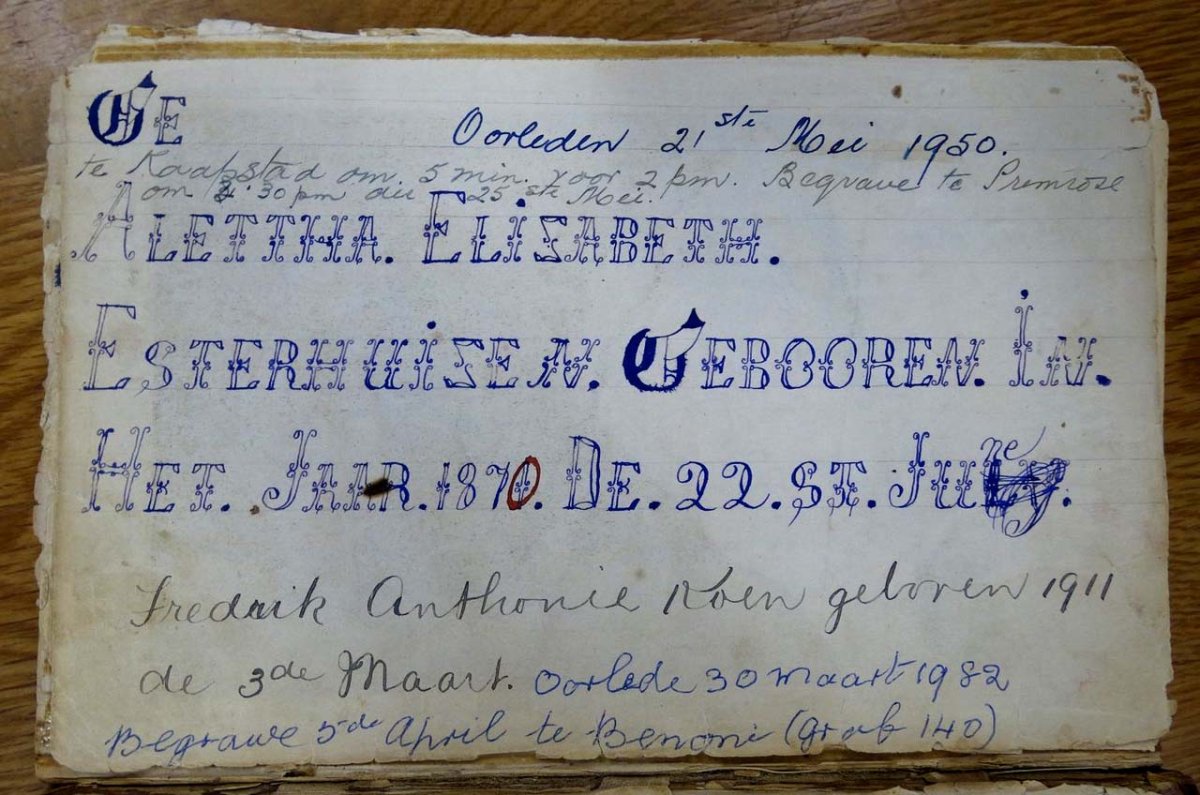 GE
Oorleden 21ste Mei 1950.
te Kaapstad om 5 min. voor 2 pm. Begrawe te Primrose
om 3.30 pm die 25ste Mei.
ALETTHA. ELISABETH.
ESTERHUIZEN. GEBOOREN. IN.
HET. JAAR. 1870. DE. 22. ST. JUNE.
Fredrik Anthonie Koen geboren 1911
de 3de Maart. Oorlede 30 maart 1982
Begrawe 5de April te Benoni (graf 140)